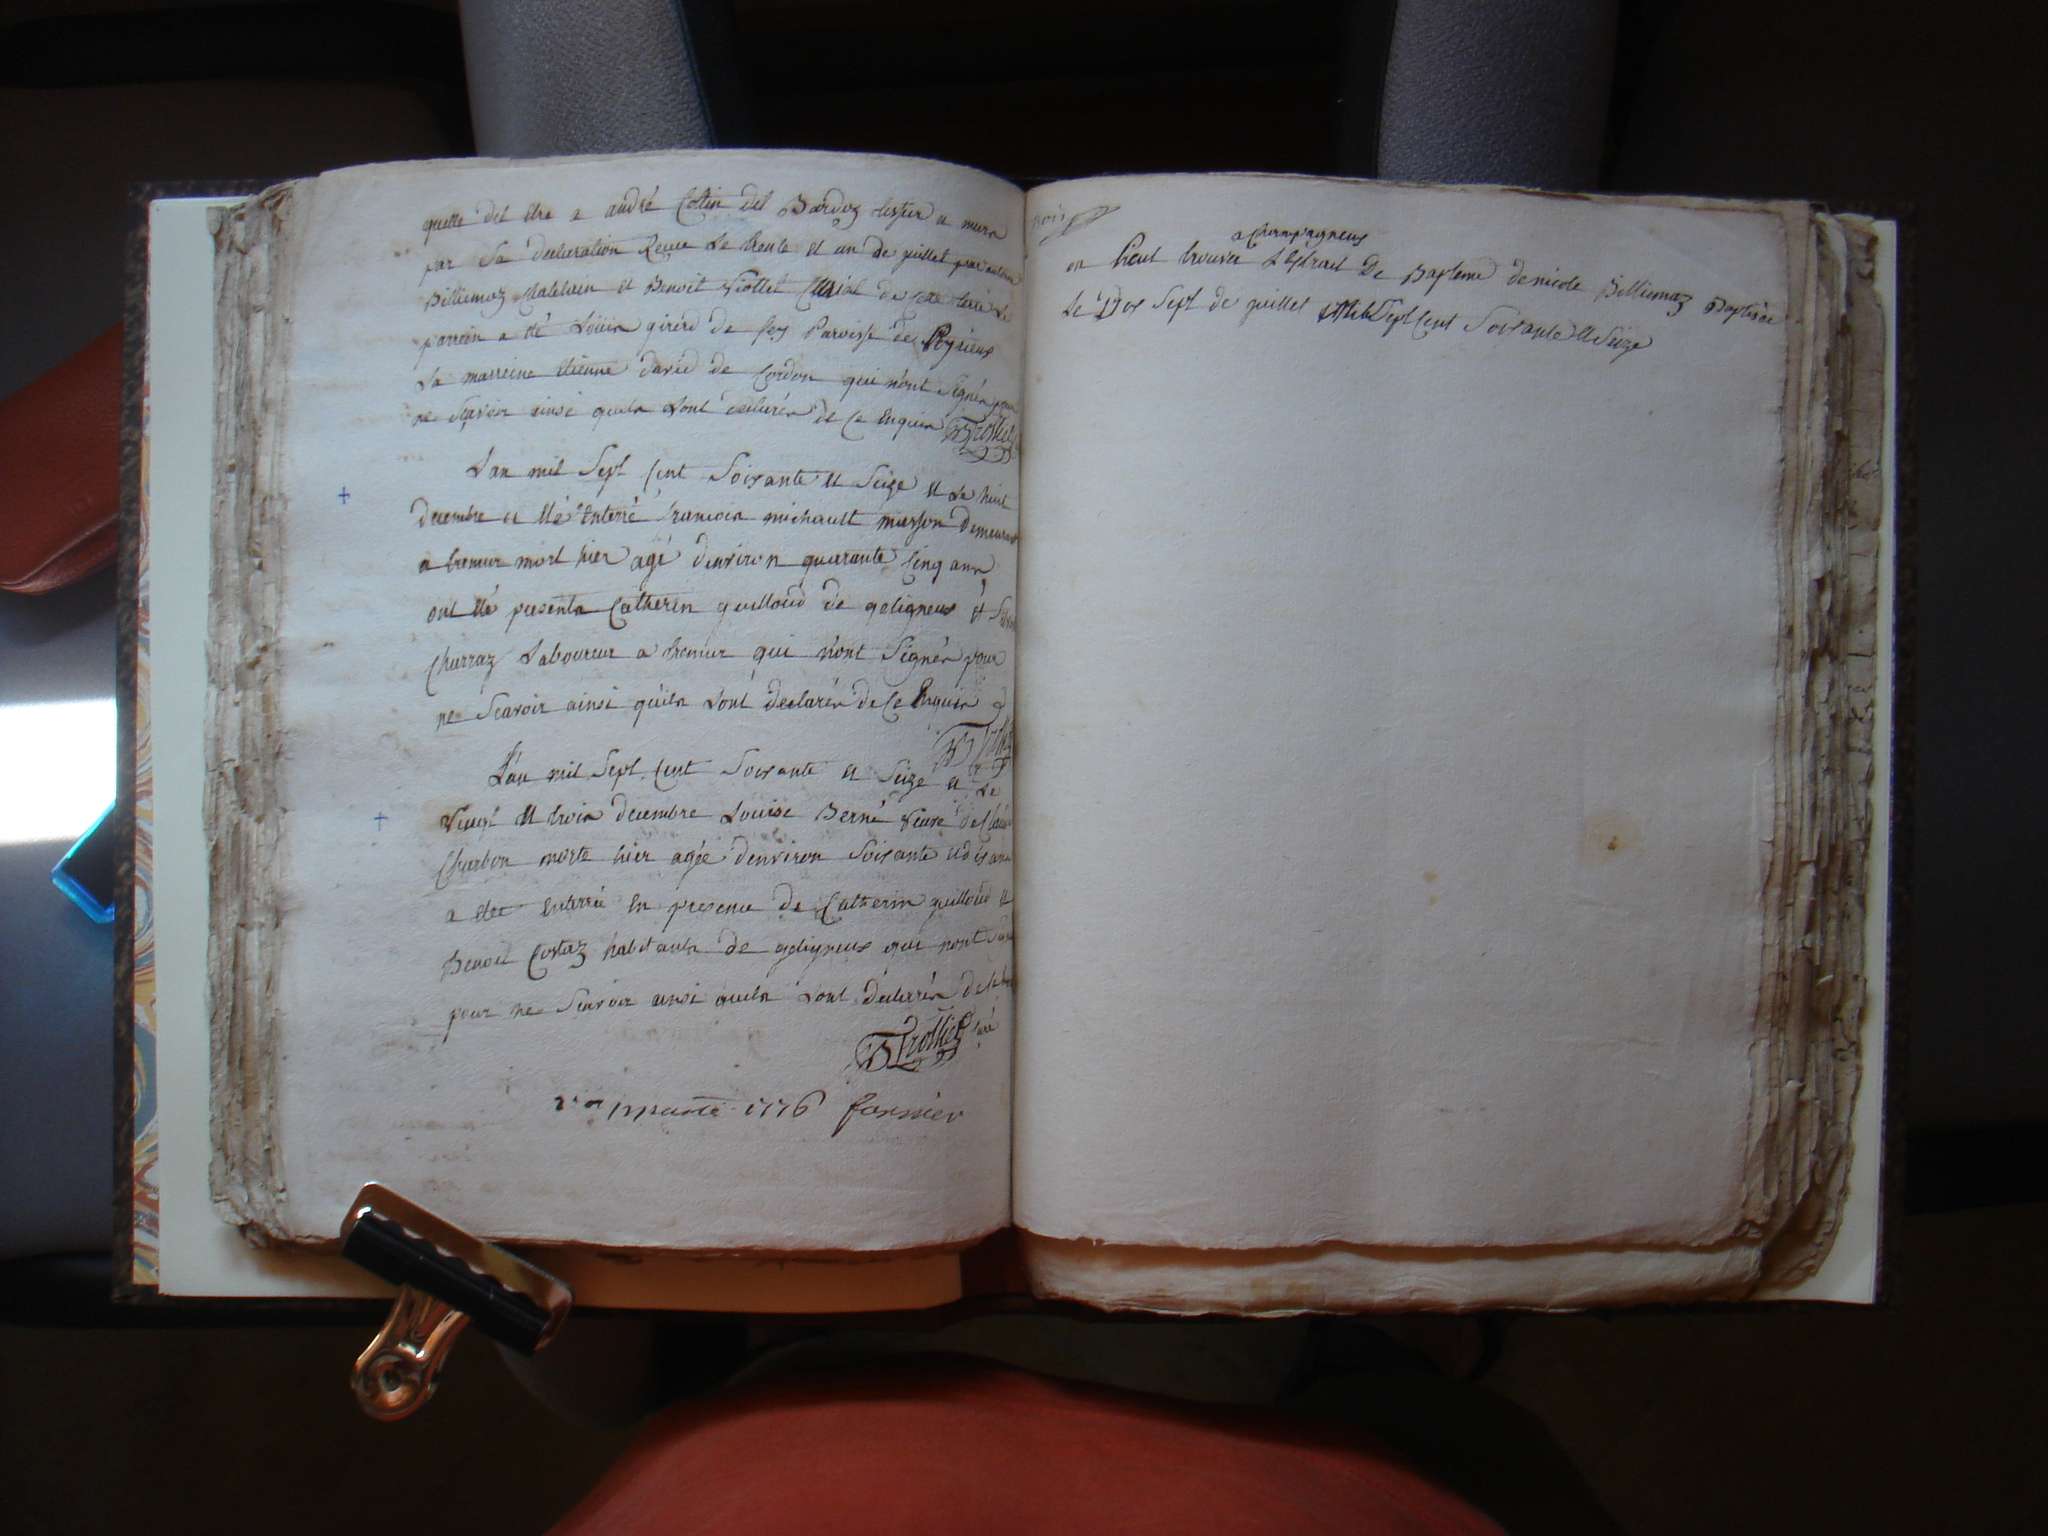 quelle dit être a andré Cottin del Bardoz tissier a murs
par sa declaration Reçue Le trente et un de juillet par antoine
Billiemaz Chatelain et Benoit Viollet Curial de cette terre Le
parrein a été Louis girerd de fey Paroisse de Peyrieux
La marreine étienne david de Cordon qui n'ont signés pour
ne scavoir ainsi quils L'ont declarés de Ce Enquis BTrollet
L'an mil Sept Cent Soixante et Seize et Le huit
decembre a été Enterré francois michault masson demeurant
a tremur mort hier agé d'environ quarante Cinq ans
ont été presents Catherin guilloud de geligneux et
Charraz Laboureur a tremur qui n'ont Signés pour
ne Scavoir ainsi qu'ils L'ont declarés de Ce Enquis
BTrollet
L'an mil Sept Cent Soixante et Seize et Le
Vingt et trois decembre Louise Berne Veuve de
Charbon morte hier agée d'environ Soixante et dix ans
a eté Enterrée En presence de Catherin guilloud et
Benoit Costaz habitants de geligneux qui n'ont
pour ne Scavoir ainsi quils L'ont declarés de
BTrollet Curé
1776 fornier
trois
a Champagneux
on Peut trouver L'Extrait De Bapteme de nicole Billiemaz Baptisée
Le Dix Sept de juillet Mil Sept Cent Soixante et Seize